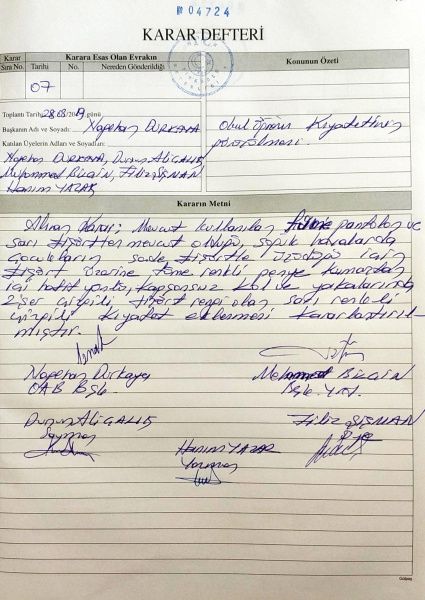 № 04724
KARAR DEFTERİ
Karar
Sıra No.
Karara Esas Olan Evrakın
Tarihi
No.
Nereden Gönderildiği
Konunun Özeti
07
Toplantı Tarihi 28.08.2019 günü
Başkanın Adı ve Soyadı: Nagehan DURKAYA
Katılan Üyelerin Adları ve Soyadları:
Nagehan DURKAYA, Dursun Ali GALIŞ
Muhammed BİLGİN, Filiz ŞİŞMAN
Hanım YAZAR
Okul Öğrenci Kıyafetinin
Kararın Metni
Alınan Karar; Mevcut kullanılan füme pantolon ve
sarı tişörtten mevcut olduğu, soğuk havalarda
Çocukların sade tişörtle üşüdüğü için
tişört üzerine füme renkli penye kumaştan
içi hafif yünlü, kapşonsuz kol ve yakalarında
2'şer çizgili tişört rengi olan sarı renkli
çizgili kıyafet eklenmesi Kararlaştırıl-
mıştır.
Nagehan Durkaya
OAB Bşk.
Mehmmed BİLGİN
Bşk. Yrd.
Dursun Ali GALIŞ
Sayman
Hanım YAZAR
Yazman
Filiz ŞİŞMAN
Üye